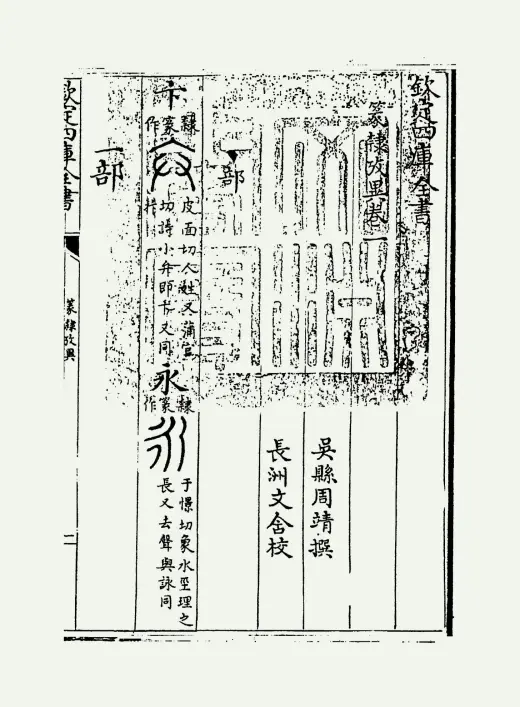 欽定四庫全書
篆隸攷異卷一
吳縣周靖撰
長洲文含校
丶部
卞
隸篆作
皮面切人姓又蒲官
切詩小弁即卞又同
永
隸篆作
于憬切象水坙理之
長又去聲與詠同
一部
欽定四庫全書
篆隸攷異
一